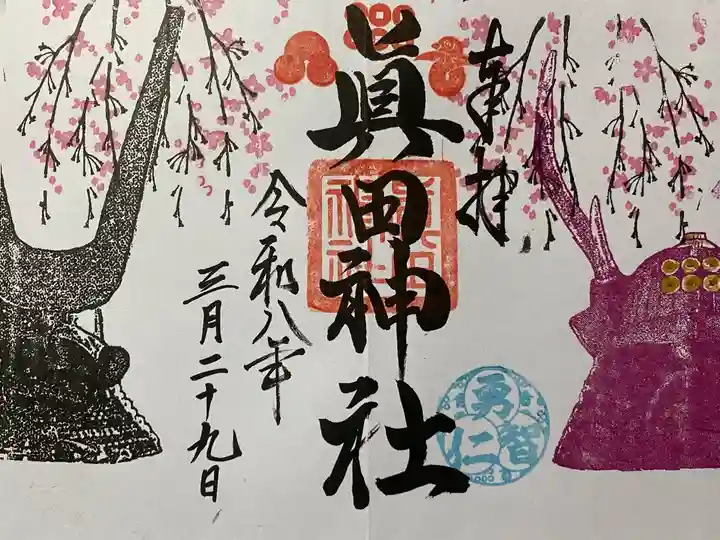 奉拝
眞田神社
令和八年
三月二十九日
勇
智
仁